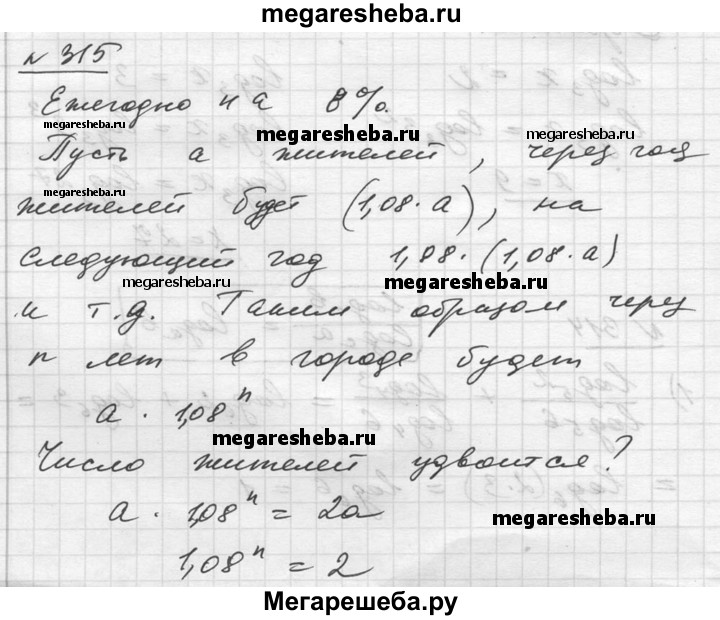 megaresheba.ru
№ 315
Ежегодно на 8%.
megaresheba.ru megaresheba.ru megaresheba.ru
Пусть a жителей, через год
megaresheba.ru
жителей будет (1,08·a), на
следующий год 1,08·(1,08·a)
megaresheba.ru megaresheba.ru
и т.д. Таким образом через
n лет в городе будет
a · 1,08ⁿ
megaresheba.ru
Число жителей удвоится?
a · 1,08ⁿ = 2a
megaresheba.ru
1,08ⁿ = 2
Мегарешеба.ру